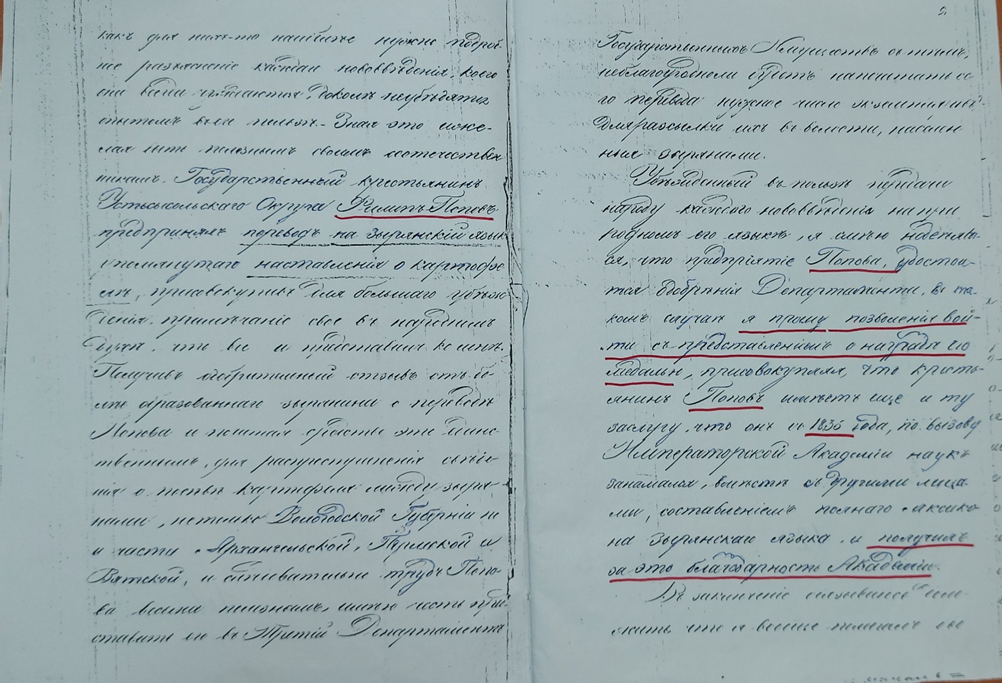 какъ для нихъ-то наиболѣе нужно подроб
ное разъясненіе каждаго нововведенія, коего
они всегда чуждаются, доколѣ неубѣдятся
опытомъ въ его пользѣ. Зная это и же-
лая быть полезнымъ своимъ соотечествен
никамъ, Государственный крестьянинъ
Устьсысольскаго Округа Филипъ Поповъ
предпринялъ переводъ на Зырянскій языкъ
упомянутаго наставленія о картофе
лѣ, присовокупивъ для большаго убѣж
денія примѣчаніе свое въ народномъ
духѣ, что все и представилъ ко мнѣ.
Получивъ одобрительный отзывъ отъ бо
лѣе образованнаго зырянина о переводѣ
Попова и почитая средство это единс
твеннымъ, для распространенія свѣдѣ
нія о пользѣ картофеля между зыря
нами, не только Вологодской Губерніи но
и части Архангельской, Пермской и
Вятской, и слѣдовательно трудъ Попо
ва весьма полезнымъ, имѣю честь пред
ставить его въ Третій Департаментъ
2.
Государственныхъ Имуществъ съ тѣмъ,
неблагоугодноли будетъ напечатать се
го перевода нужное число экземпляровъ
для разсылки ихъ въ волости, населен
ныя зырянами.
Убѣжденный въ пользѣ передачи
народу каждаго нововведенія на при
родномъ его языкѣ, я смѣю надѣять
ся, что предпріятіе Попова, удостои-
тся одобренія Департамента. Въ та-
комъ случаѣ я прошу позволенія вой-
ти съ представленіемъ о наградѣ его
медалью, присовокупляя, что кресть-
янинъ Поповъ имѣетъ еще и ту
заслугу, что онъ съ 1835 года, по вызову
Императорской Академіи наукъ
занимался, вмѣстѣ съ другими лица
ми, составленіемъ полнаго лексико
на Зырянскаго языка и получилъ
за это благодарность Академіи.
Въ заключеніе
что я